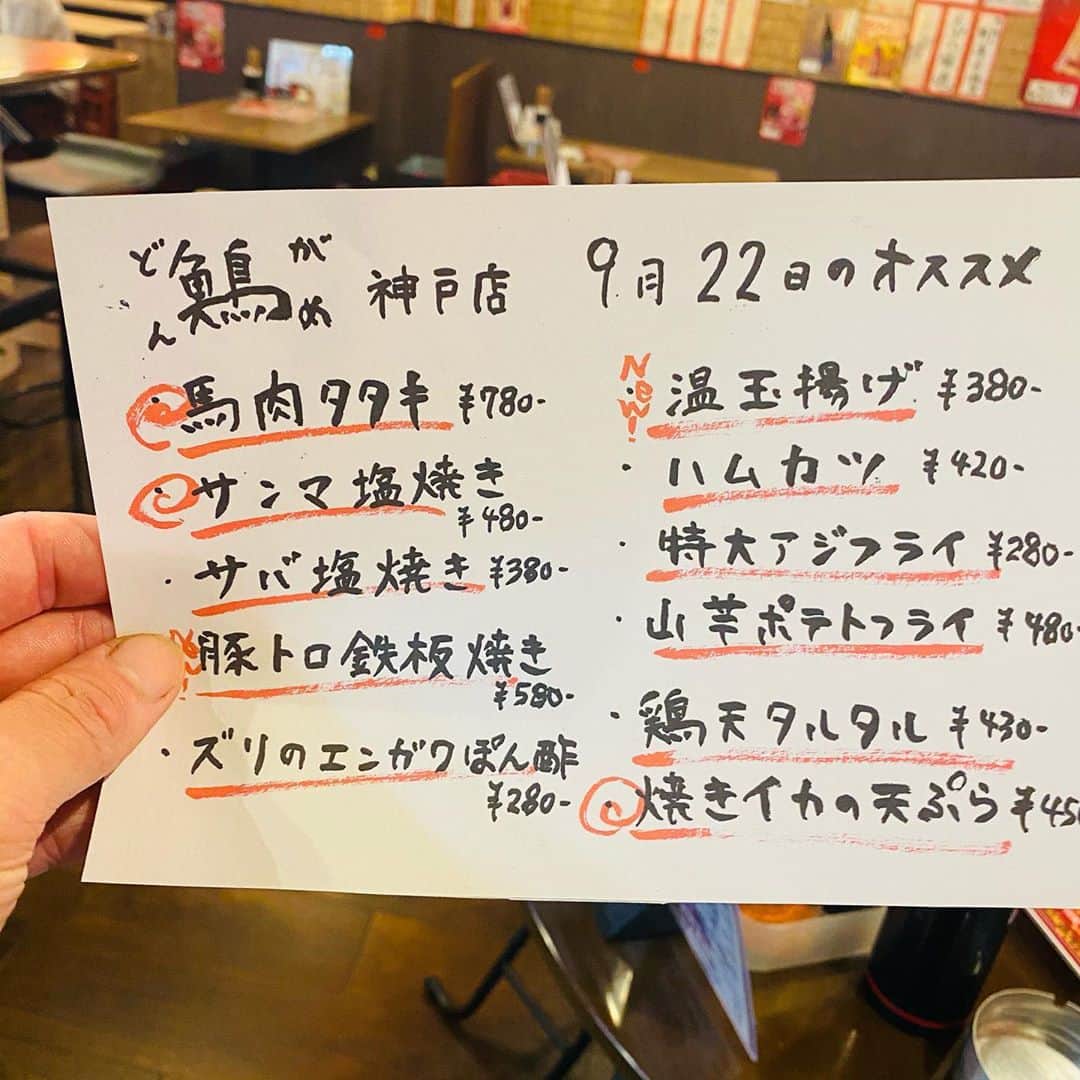 どん鶏がめ 神戸店
9月22日のオススメ
・馬肉タタキ ¥780-
・サンマ塩焼き
¥480-
・サバ塩焼き ¥380-
豚トロ鉄板焼き
¥580-
・ズリのエンガワぽん酢
¥280-
New!
・温玉揚げ ¥380-
・ハムカツ ¥420-
・特大アジフライ ¥280-
・山芋ポテトフライ ¥480-
・鶏天タルタル ¥430-
・焼きイカの天ぷら ¥450